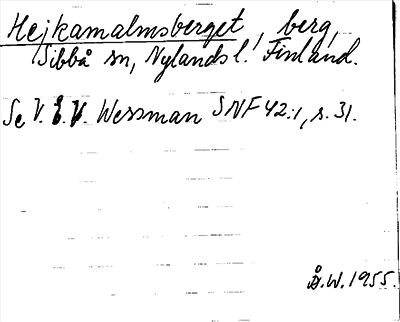 Hejkamalmsberget, berg,
Sibbå sn, Nylands l. Finland.
Se V. E. V. Wessman SNF 42:1, s. 31.
Å.W. 1955.